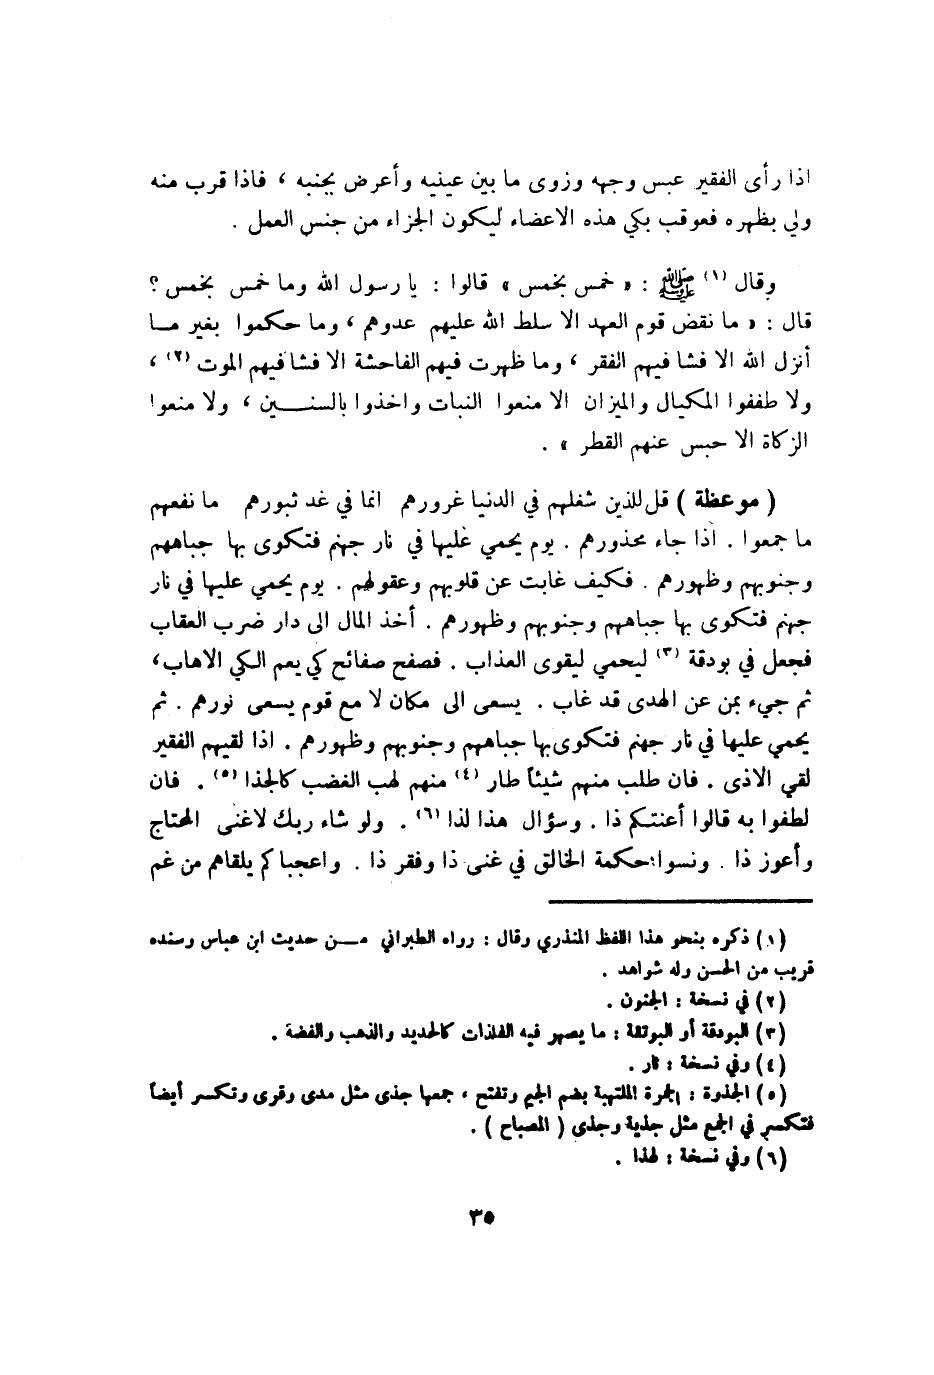 اذا رأى الفقير عبس وجهه وزوى ما بين عينيه وأعرض بجنبه ، فاذا قرب منه
ولي بظهره فعوقب بكي هذه الاعضاء ليكون الجزاء من جنس العمل .
وقال (١) ﷺ : « خمس بخمس » قالوا : يا رسول الله وما خمس بخمس ؟
قال : « ما نقض قوم العهد الا سلط الله عليهم عدوهم ، وما حكموا بغير مـا
أنزل الله الا فشا فيهم الفقر ، وما ظهرت فيهم الفاحشة الا فشا فيهم الموت (٢) ،
ولا طففوا المكيال والميزان الا منعوا النبات واخذوا بالسنـــين ، ولا منعوا
الزكاة الا حبس عنهم القطر » .
( موعظة ) قل للذين شغلهم في الدنيا غرورهم انما في غد ثبورهم ما نفعهم
ما جمعوا . اذا جاء محذورهم . يوم يحمي عليها في نار جهنم فتكوى بها جباههم
وجنوبهم وظهورهم . فكيف غابت عن قلوبهم وعقولهم . يوم يحمي عليها في نار
جهنم فتكوى بها جباههم وجنوبهم وظهورهم . أخذ المال الى دار ضرب العقاب
فجعل في بودقة (٣) ليحمي ليقوى العذاب . فصفح صفائح كي يعم الكي الاهاب ،
ثم جيء بمن عن الهدى قد غاب . يسعى الى مكان لا مع قوم يسعى نورهم . ثم
يحمي عليها في نار جهنم فتكوى بها جباههم وجنوبهم وظهورهم . اذا لقيهم الفقير
لقي الاذى . فان طلب منهم شيئاً طار (٤) منهم لهب الغضب كالجذا (٥) . فان
لطفوا به قالوا أعنتكم ذا . وسؤال هذا لذا (٦) . ولو شاء ربك لاغنى المحتاج
وأعوز ذا . ونسوا حكمة الخالق في غنى ذا وفقر ذا . واعجبا كم يلقاهم من غم
(١) ذكره بنحو هذا اللفظ المنذري وقال : رواه الطبراني مـــن حديث ابن عباس وسنده
قريب من الحسن وله شواهد .
(٢) في نسخة : الجنون .
(٣) البودقة أو البوتقة : ما يصهر فيه الفلذات كالحديد والذهب والفضة .
(٤) وفي نسخة : ثار .
(٥) الجذوة : الجمرة الملتهبة بضم الجيم وتفتح ، جمعها جذى مثل مدى وقرى وتكسر أيضاً
فتكسر في الجمع مثل جذية وجذى ( المصباح ) .
(٦) وفي نسخة : لهذا .
٣٥